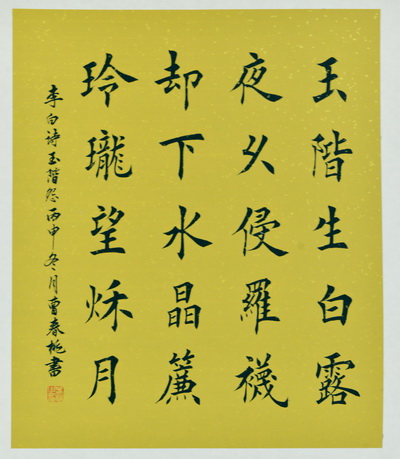 玉階生白露
夜久侵羅襪
却下水晶簾
玲瓏望秌月
李白诗玉階怨丙申冬月曹春桃書